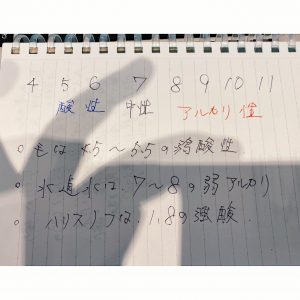 4 5 6 7 8 9 10 11
酸性 中性 アルカリ性
○ 毛は 4.5～5.5の弱酸性
○ 水道水は、7～8の弱アルカリ
○ ハリスリフは、1.8の強酸